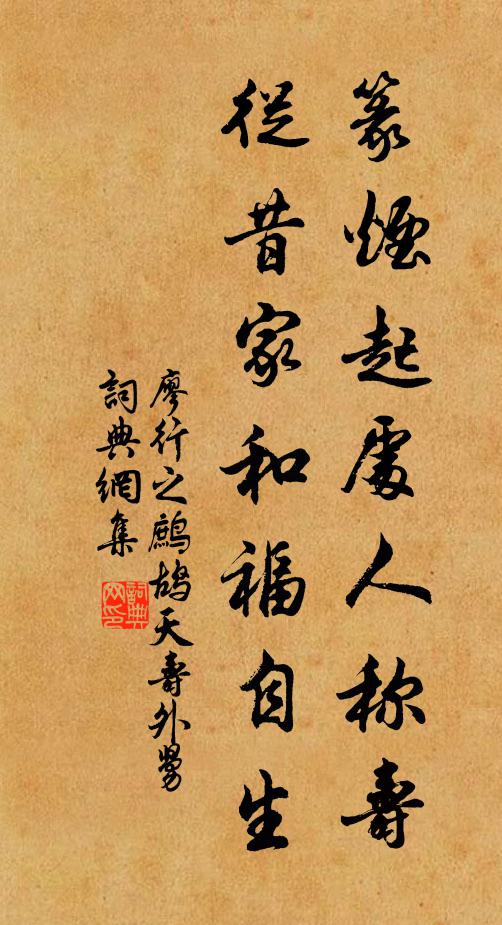 篆煙起處人称壽
從昔家和福自生
廖行之鷓鴣天壽外舅
詞典網集
詞典网印